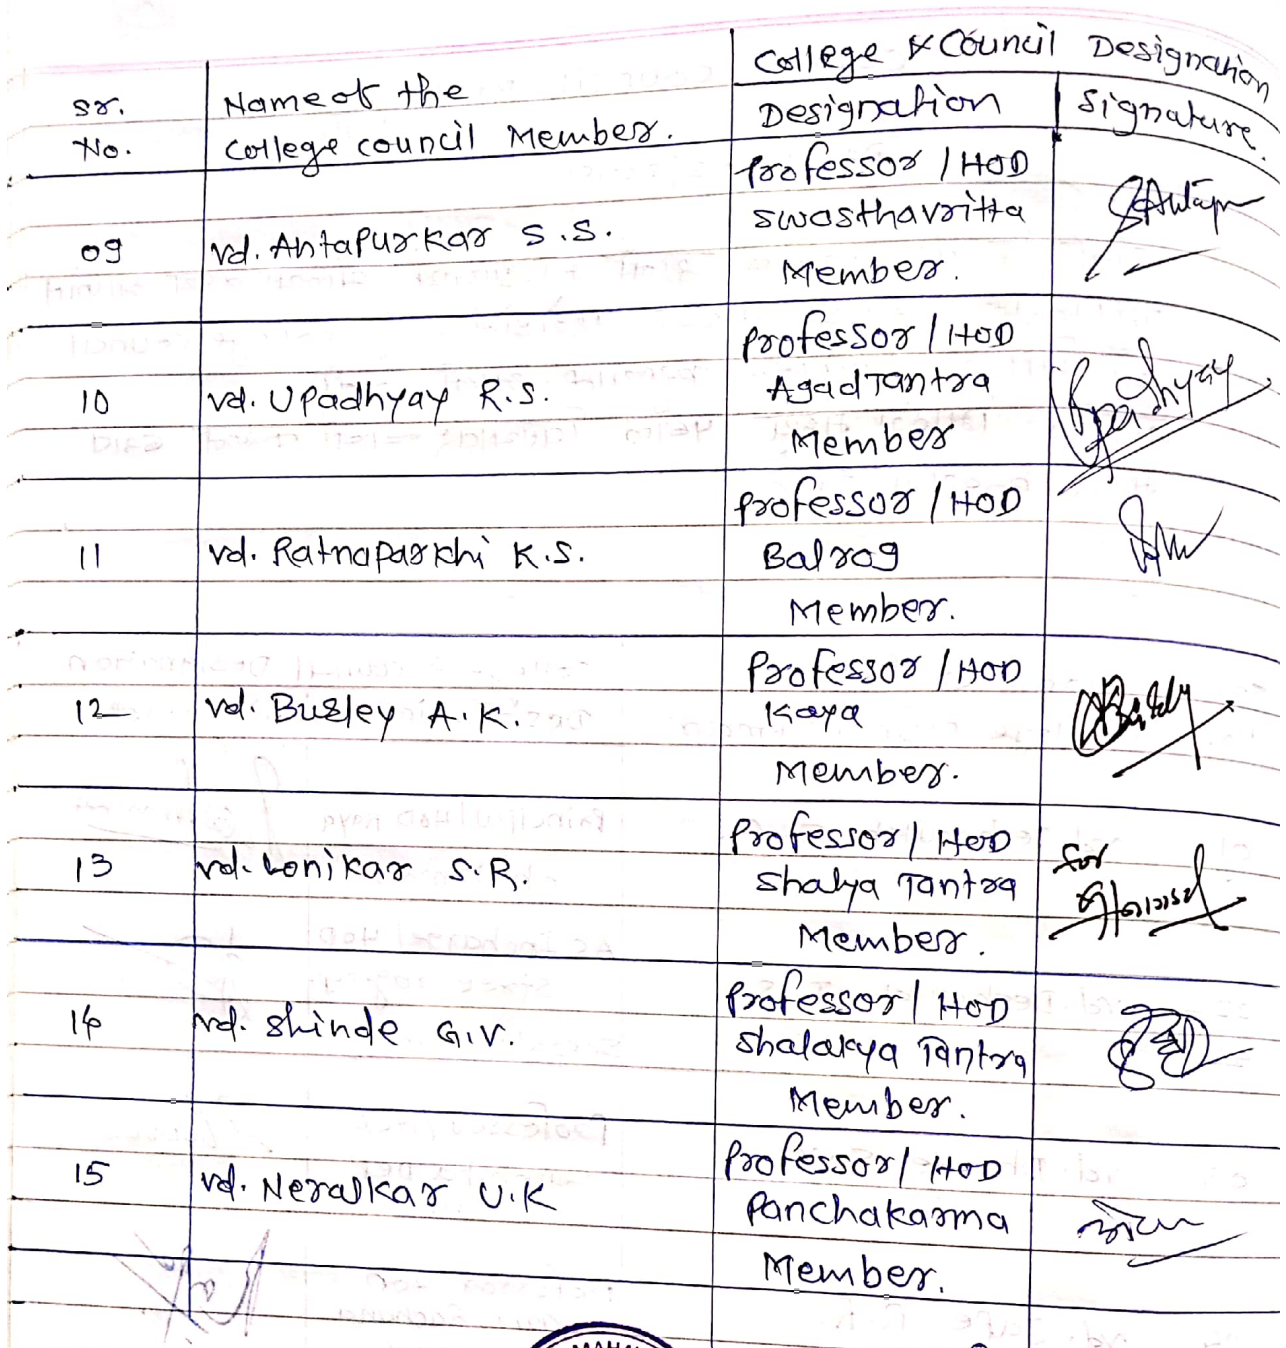 College & Council Designation
Sr. No.
Name of the College council Member.
Designation
Signature.
09
Vd. Antapurkar S.S.
Professor / HOD
Swasthavritta
Member.
10
Vd. Upadhyay R.S.
Professor / HOD
AgadTantra
Member
Upadhyay
11
Vd. Ratnaparkhi K.S.
Professor / HOD
Balrog
Member.
12
Vd. Busley A.K.
Professor / HOD
Kaya
Member.
13
Vd. Lonikar S.R.
Professor / HOD
Shalya Tantra
Member.
for
14
Vd. Shinde G.V.
Professor / HOD
Shalakya Tantra
Member.
15
Vd. Neralkar U.K
Professor / HOD
Panchakarma
Member.